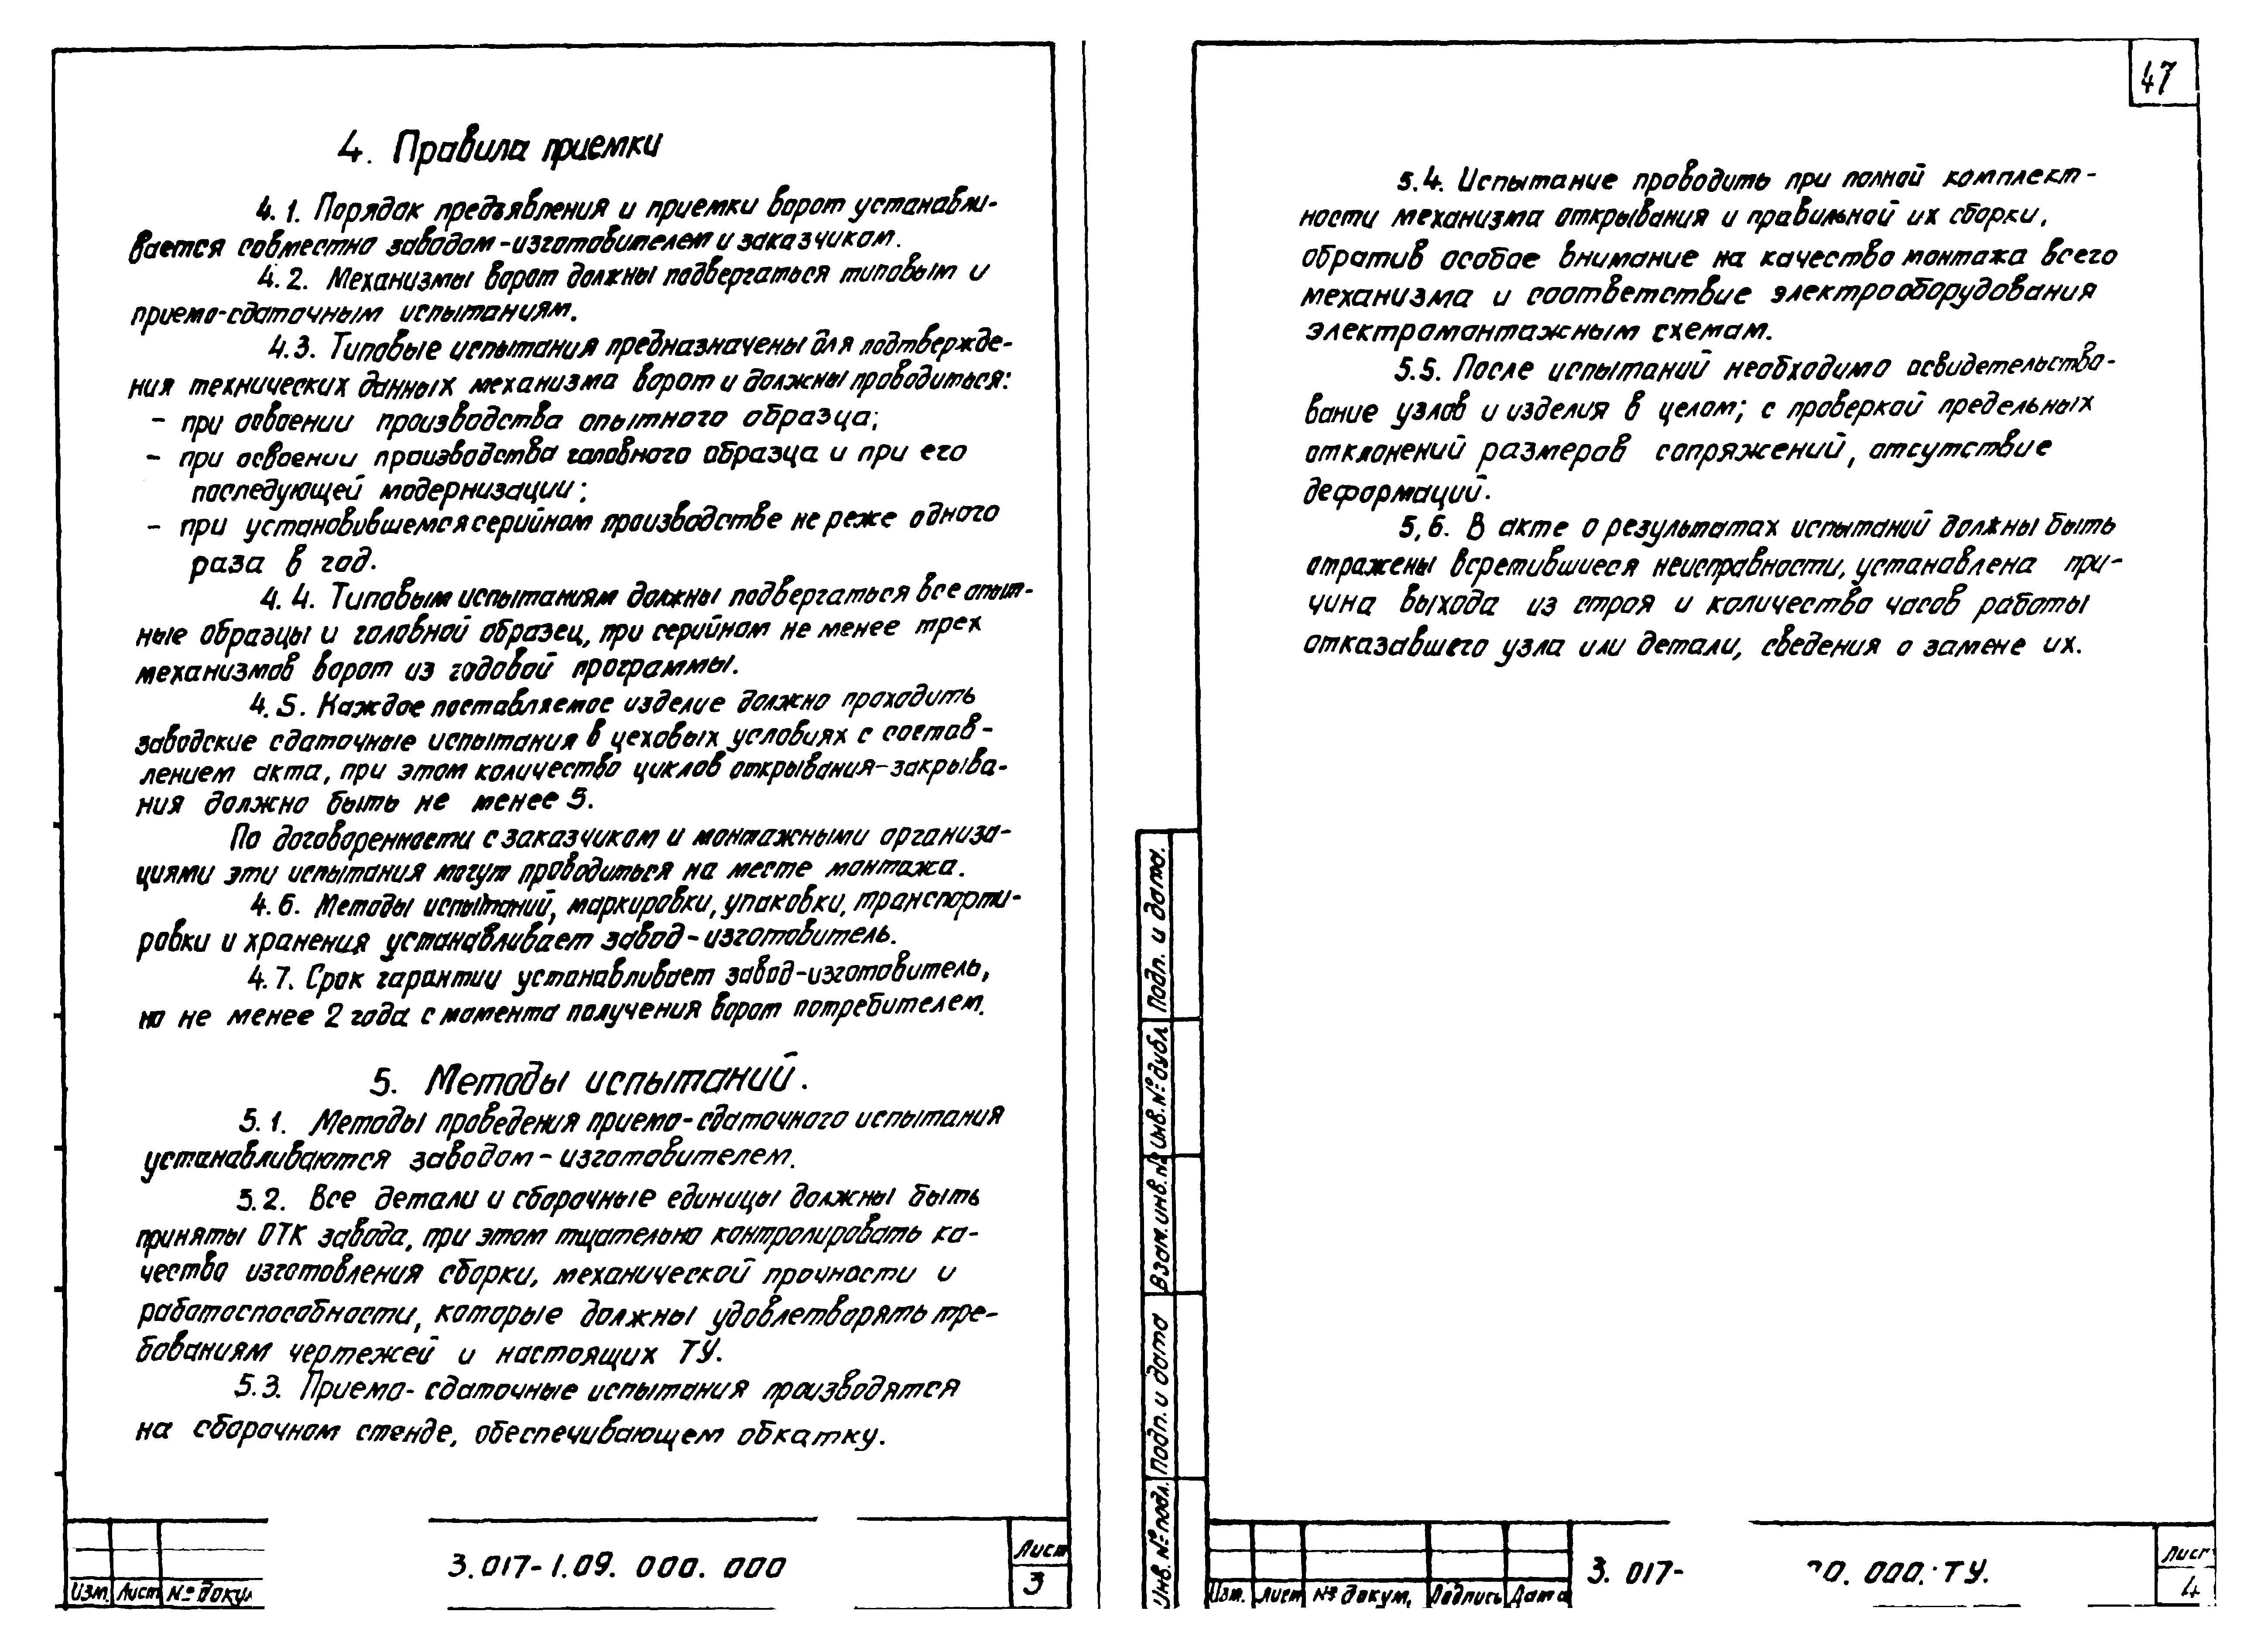 4. Правила приемки
4.1. Порядок предъявления и приемки ворот устанавли-
вается совместно заводом-изготовителем и заказчиком.
4.2. Механизмы ворот должны подвергаться типовым и
приемо-сдаточным испытаниям.
4.3. Типовые испытания предназначены для подтвержде-
ния технических данных механизма ворот и должны проводиться:
- при освоении производства опытного образца;
- при освоении производства головного образца и при его
последующей модернизации;
- при установившемся серийном производстве не реже одного
раза в год.
4.4. Типовым испытаниям должны подвергаться все опыт-
ные образцы и головной образец, при серийном не менее трех
механизмов ворот из годовой программы.
4.5. Каждое поставляемое изделие должно проходить
заводские сдаточные испытания в цеховых условиях с состав-
лением акта, при этом количество циклов открывания-закрыва-
ния должно быть не менее 5.
По договоренности с заказчиком и монтажными организа-
циями эти испытания могут проводиться на месте монтажа.
4.6. Методы испытаний, маркировки, упаковки, транспорти-
ровки и хранения устанавливает завод-изготовитель.
4.7. Срок гарантии устанавливает завод-изготовитель,
но не менее 2 года с момента получения ворот потребителем.
5. Методы испытаний.
5.1. Методы проведения приемо-сдаточного испытания
устанавливаются заводом-изготовителем.
5.2. Все детали и сборочные единицы должны быть
приняты ОТК завода, при этом тщательно контролировать ка-
чество изготовления сборки, механической прочности и
работоспособности, которые должны удовлетворять тре-
бованиям чертежей и настоящих ТУ.
5.3. Приемо-сдаточные испытания производятся
на сборочном стенде, обеспечивающем обкатку.
Изм. Лист № докум
3.017-1.09. 000. 000
Лист
3
47
5.4. Испытание проводить при полной комплект-
ности механизма открывания и правильной их сборки,
обратив особое внимание на качество монтажа всего
механизма и соответствие электрооборудования
электромонтажным схемам.
5.5. После испытаний необходимо освидетельство-
вание узлов и изделия в целом; с проверкой предельных
отклонений размеров сопряжений, отсутствие
деформаций.
5.6. В акте о результатах испытаний должны быть
отражены всретившиеся неисправности, установлена при-
чина выхода из строя и количество часов работы
отказавшего узла или детали, сведения о замене их.
Подп. и дата.
Инв. № дубл
Взам. инв. №
Подп. и дата
Инв. № подл.
Изм. Лист № докум. Подпись Дата
3. 017- 0. 000. ТУ.
Лист
4